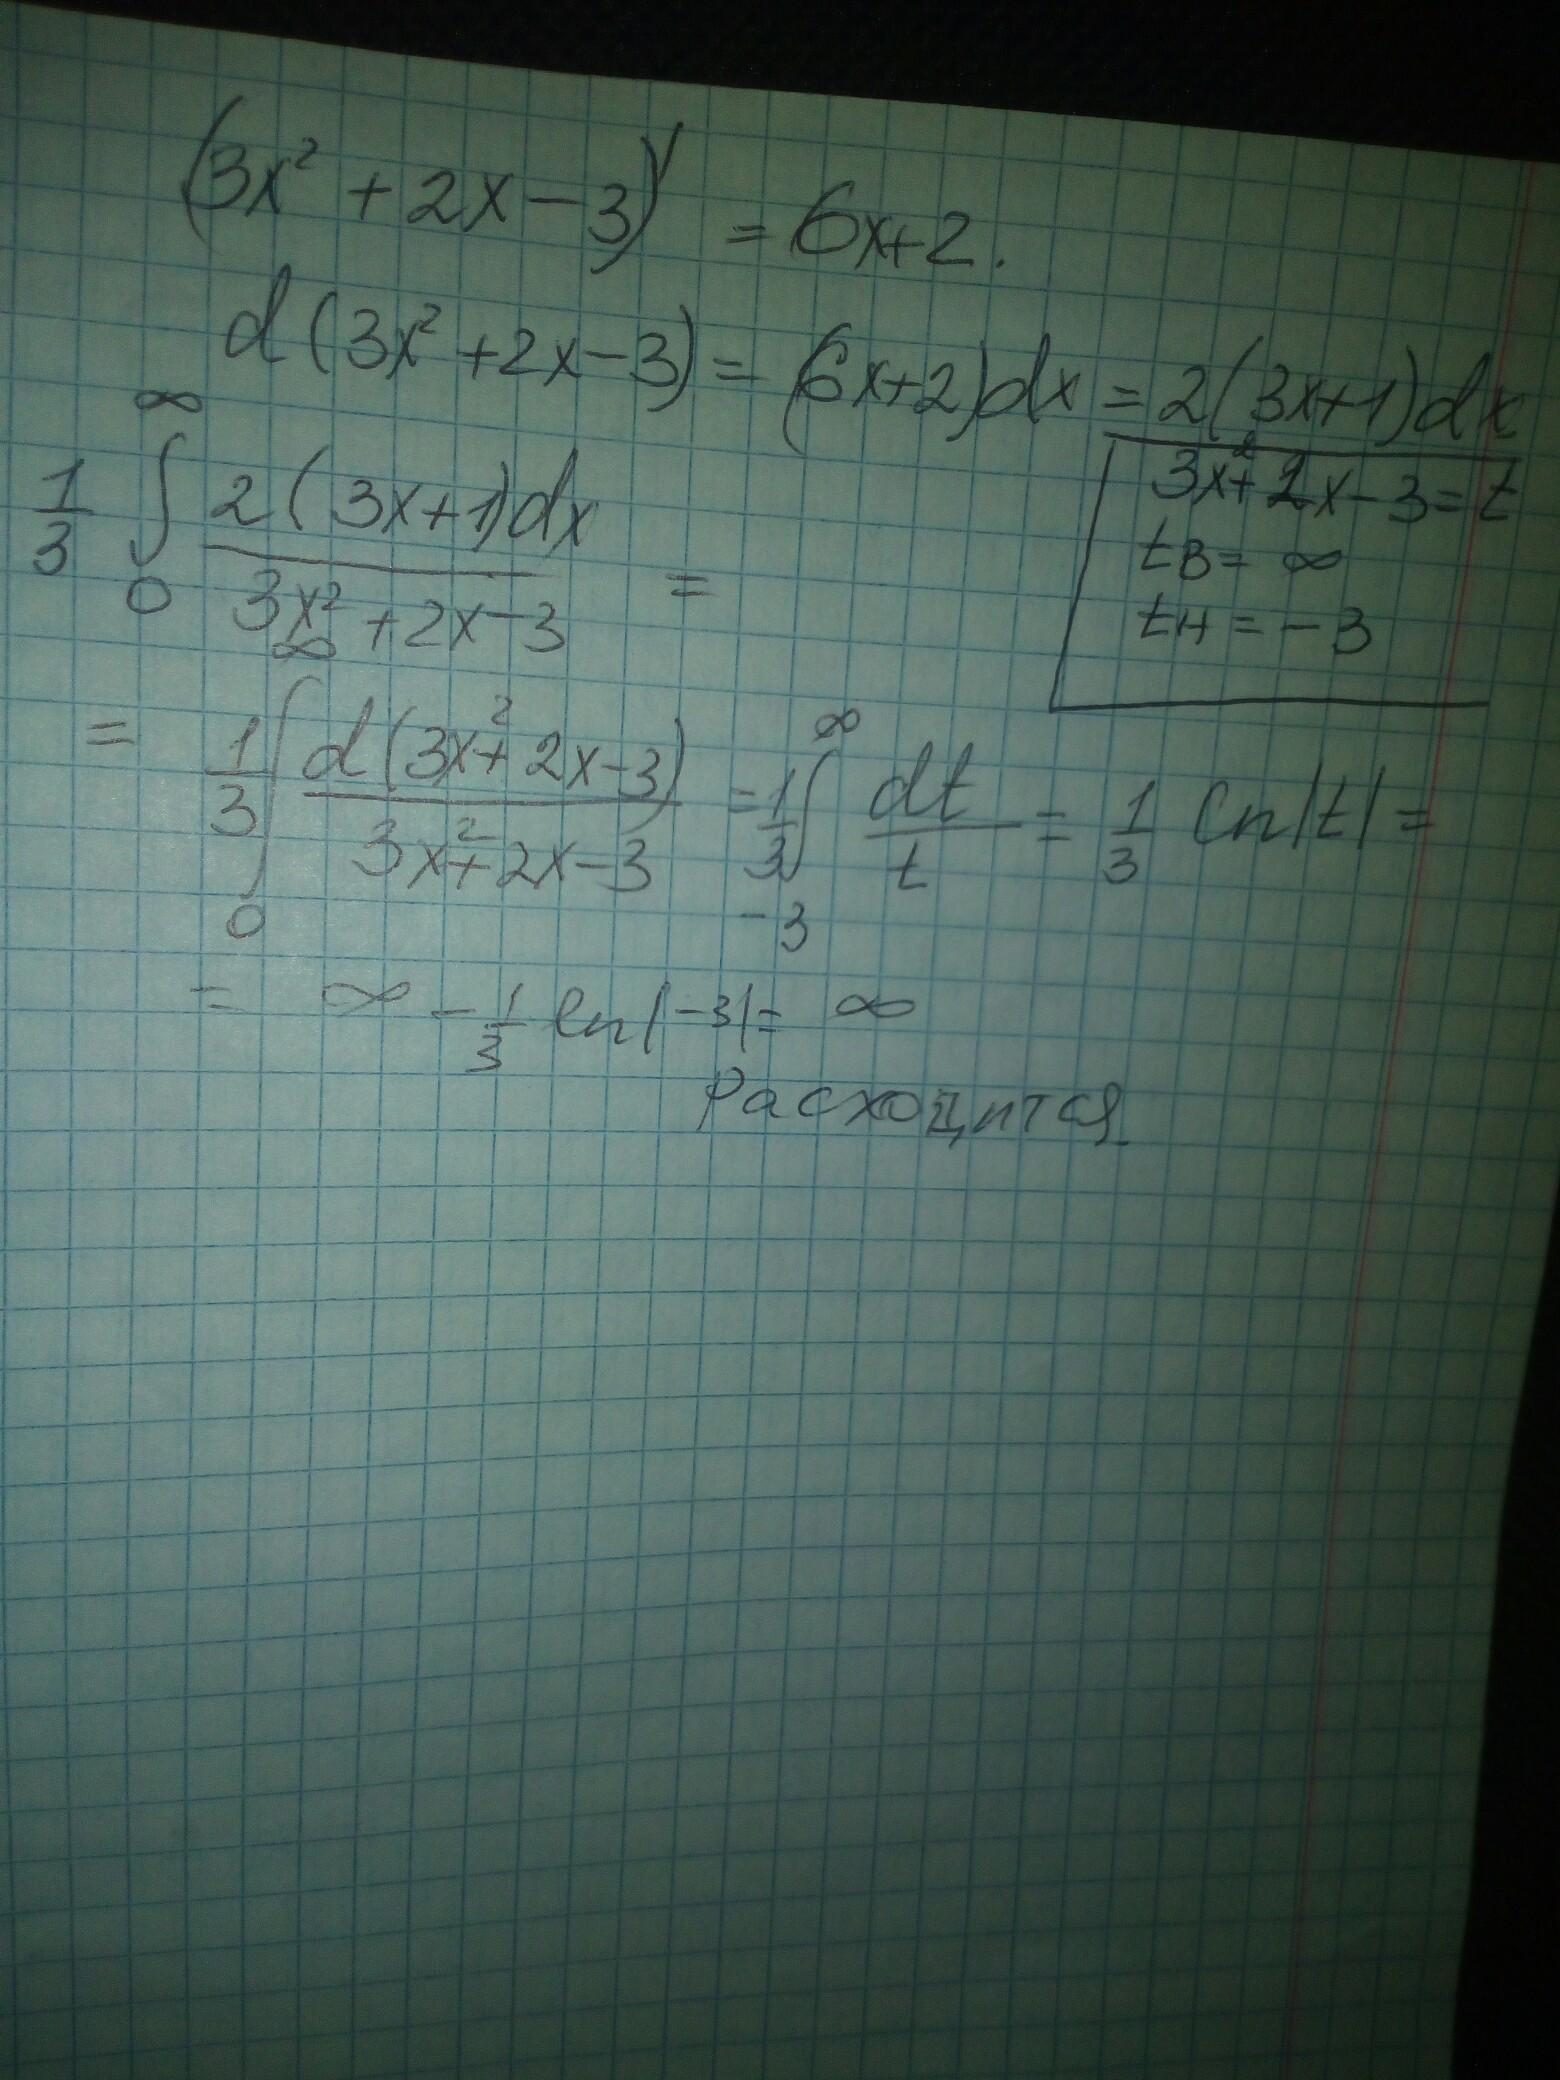 (3x² + 2x - 3)' = 6x+2.
d(3x² + 2x - 3) = (6x+2)dx = 2(3x+1)dx
3x²+2x-3 = t
tв = ∞
tн = -3
1/3 ∫₀^∞ 2(3x+1)dx / (3x² + 2x - 3) =
= 1/3 ∫₀^∞ d(3x²+2x-3) / (3x²+2x-3) = 1/3 ∫₋₃^∞ dt/t = 1/3 ln|t| =
= ∞ - 1/3 ln|-3| = ∞
Расходится